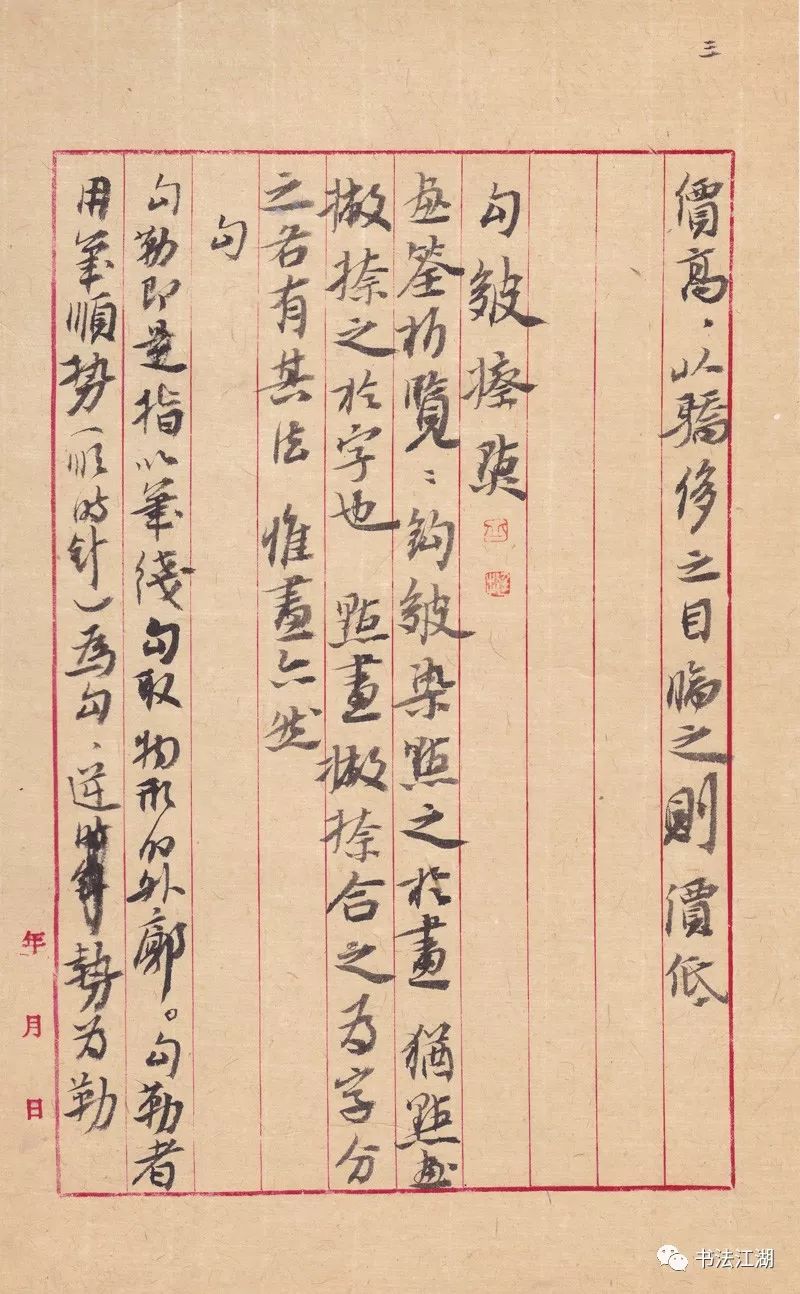 三
價高，以驕侈之目臨之則價低
勾皴擦點
画筌析覽：鈎皴染點之於畫 猶點画
撇捺之於字也 點畫撇捺合之为字分
之各有其法 惟畫亦然
勾
勾勒即是指以筆綫勾取物形的外廓。勾勒者
用筆順势（順时針）為勾，逆时針势为勒
年 月 日
书法江湖